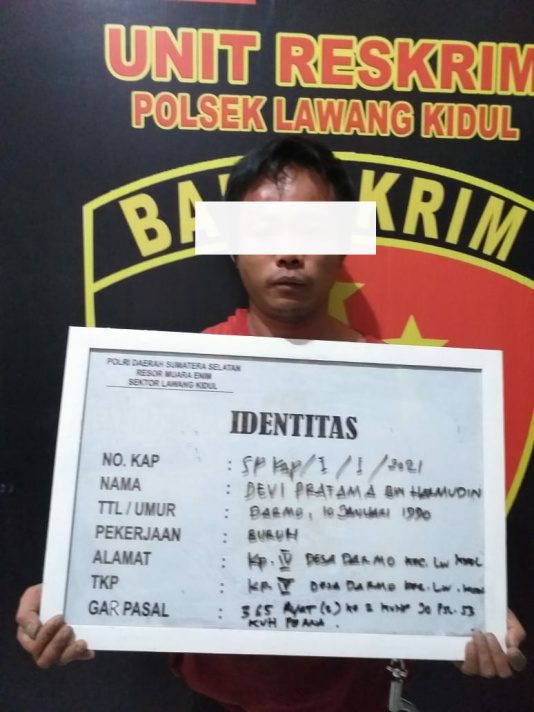 UNIT RESKRIM
POLSEK LAWANG KIDUL
BA KRIM
POLRI DAERAH SUMATERA SELATAN
RESOR MUARA ENIM
SEKTOR LAWANG KIDUL
IDENTITAS
NO. KAP : SP KAP / I / I / 2021
NAMA : DEVI PRATAMA BIN HARMUDIN
TTL / UMUR : DARMO, 10 JANUARI 1990
PEKERJAAN : BURUH
ALAMAT : KP. IV DESA DARMO KEC. LW KIDUL
TKP : KP. IV DESA DARMO KEC. LW. KIDUL
GAR PASAL : 365 AYAT (2) KE 2 KUHP JO PSL. 53
KUH PIDANA.